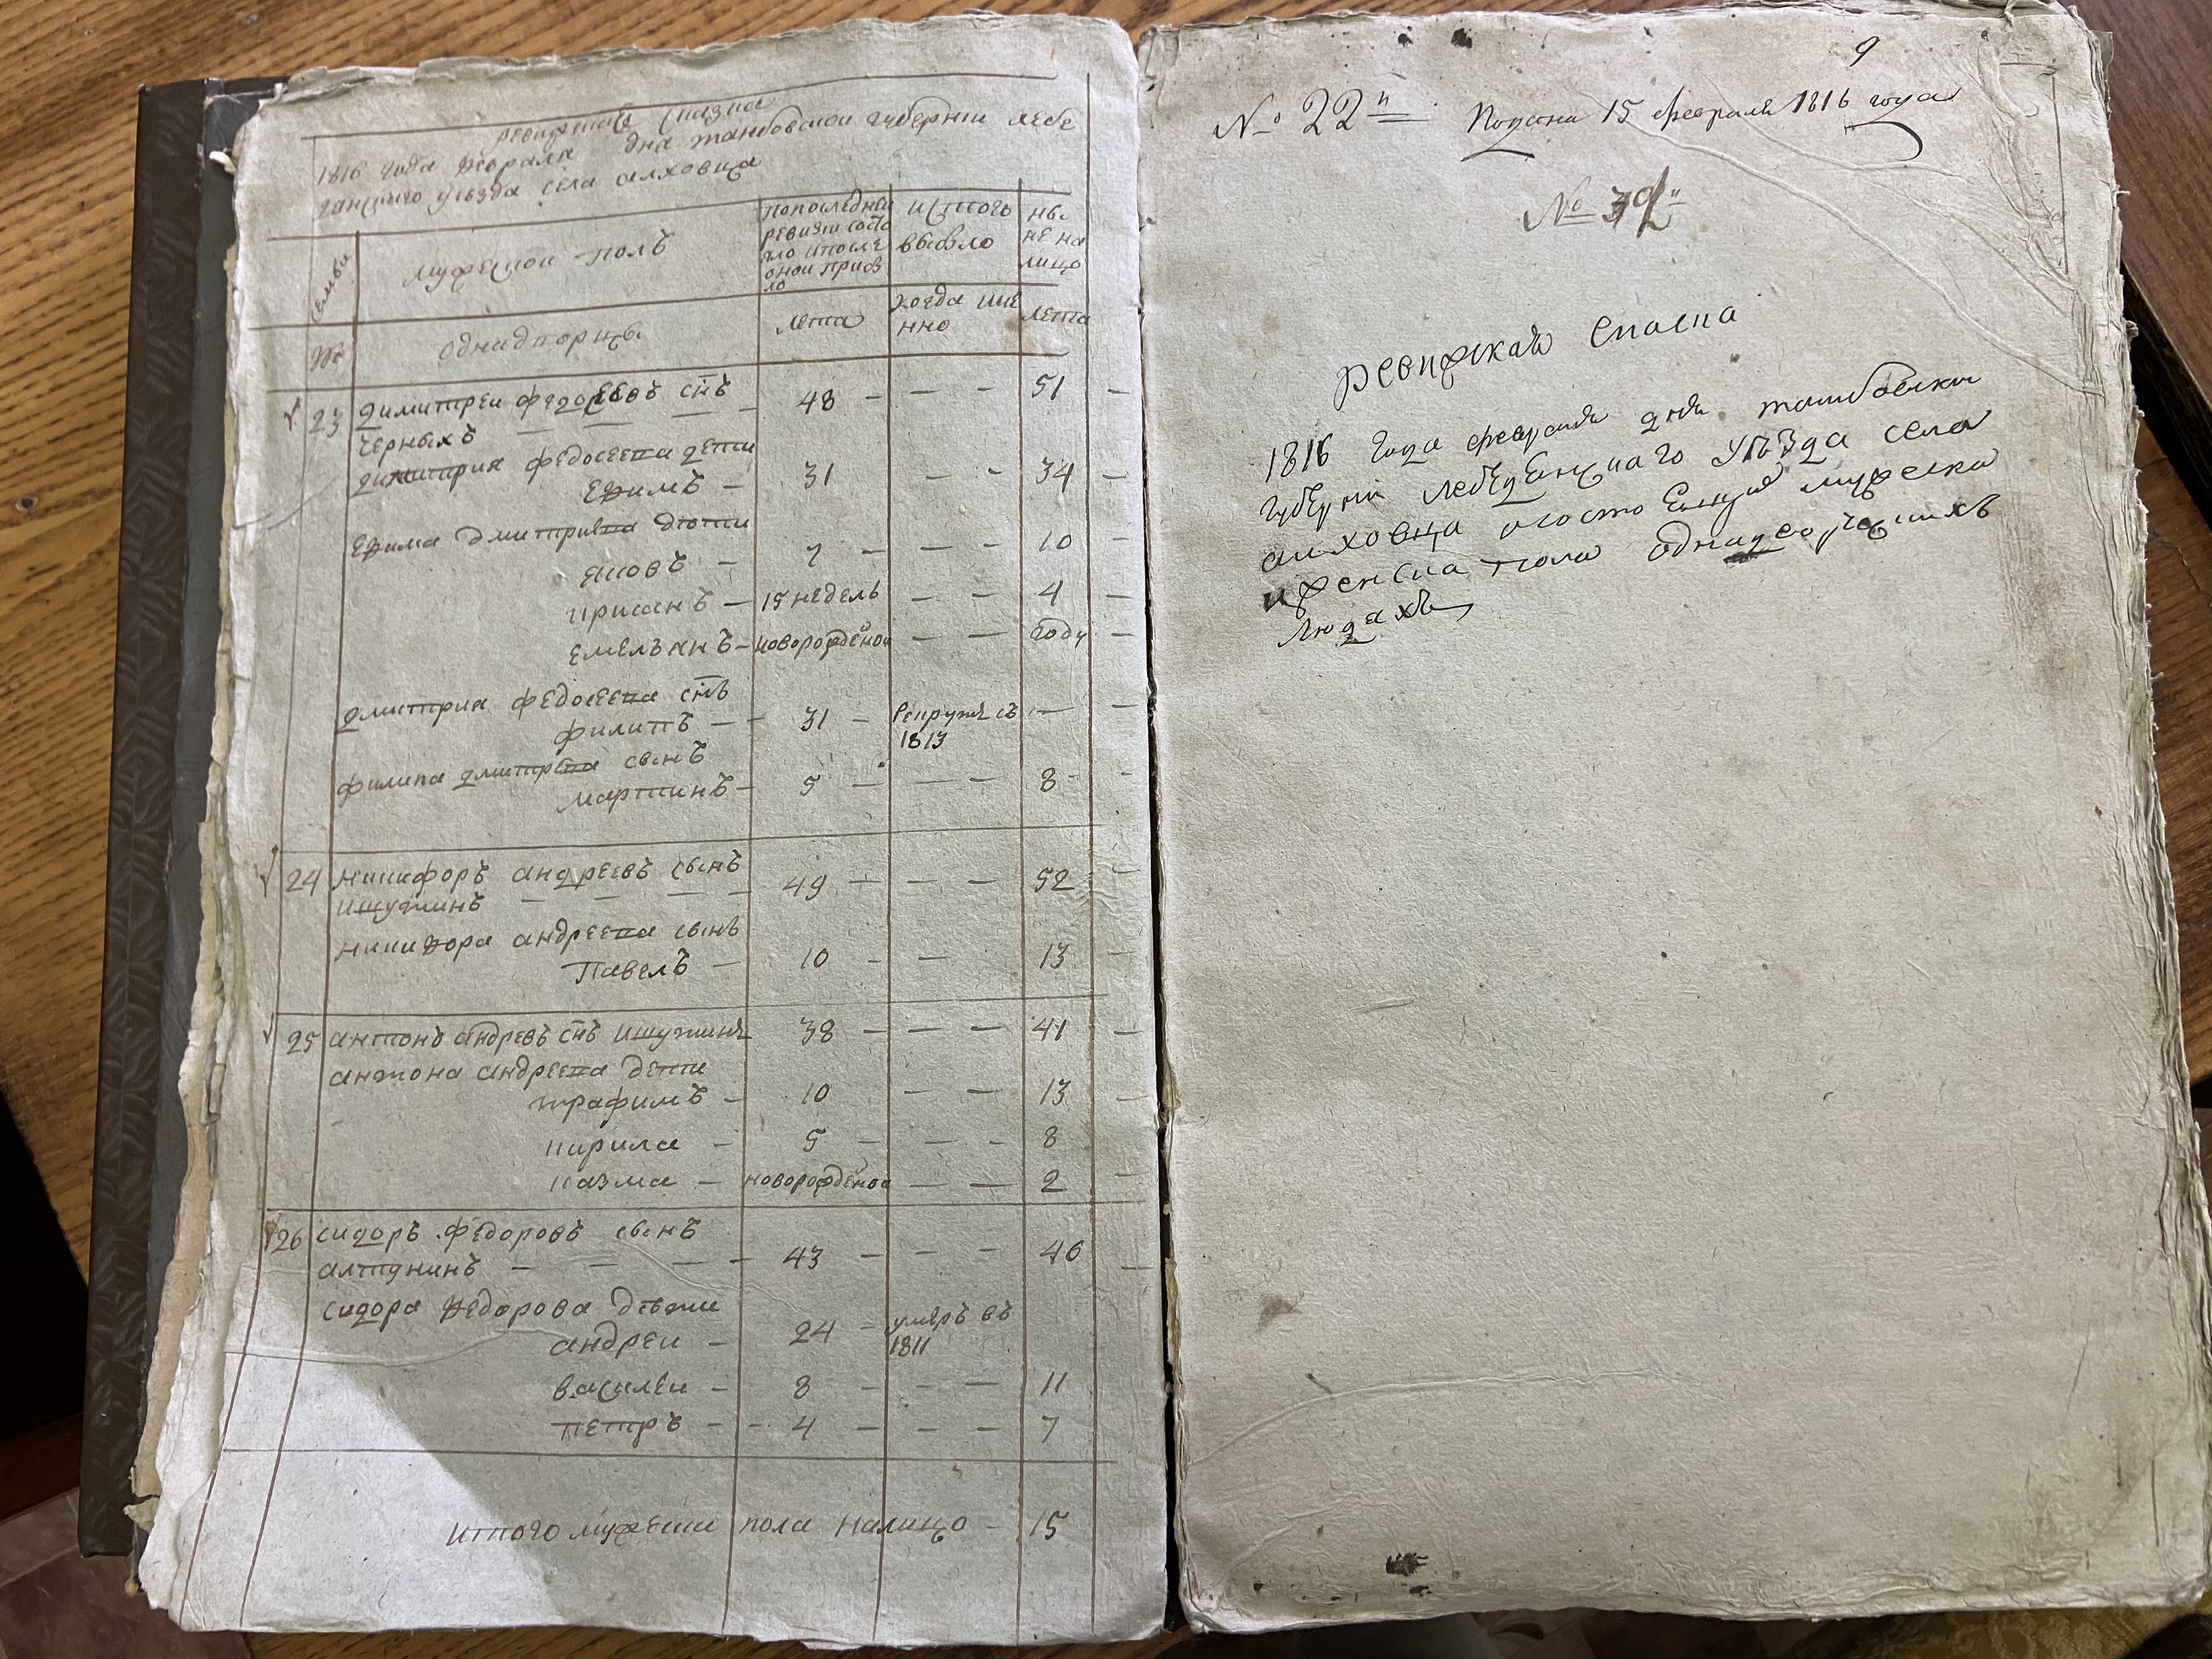 ревижская скаска
1816 года февраля дня танбовской губернии лебе
данского уѣзда села алховца
семьи
мужеской полъ
попоследней
ревизи состо
яло и после
оной прибы
ло
ис того
выбыло
ны
не на
лицо
№
однадворцы
лета
когда име
нно
лета
23 димитреи федосеевъ снъ 48 — — — 51 —
черныхъ — —
димитрия федосеева дети
ефимъ — 31 — — 34 —
ефима дмитриева дети
яковъ — 7 — — — 10 —
кирсанъ — 15 недель — — 4 —
емельянъ — новорожденой — — году —
дмитрия федосеева снъ
филипъ — 31 — рекрутъ съ — —
1813
филипа дмитрева сынъ
мартинъ — 5 — — — 8 —
24 никифоръ андреевъ сынъ 49 — — — 52 —
ишутинъ — — — —
никифора андреева сынъ
Павелъ — 10 — — 13 —
25 антонъ андревъ снъ ишутинъ 38 — — — 41 —
антона андреева дети
трафимъ — 10 — — 13 —
кирила — 5 — — — 8 —
казма — новорожденой — — 2 —
26 сидоръ федоровъ сынъ
алтунинъ — — — — 43 — — — 46 —
сидора федорова дѣти
андреи — 24 — умеръ въ
1811
василеи — 8 — — — 11
петръ — 4 — — — 7
итого мужеска пола налицо — 15
9
№ 22й Подана 15 февраля 1816 года
№ 32й
Ревижская Скаска
1816 года февраля дня танбовской
губерни лебедянцкаго уѣзда села
алховца о состоящих мужеска
и женска пола однадворческихъ
людахъ